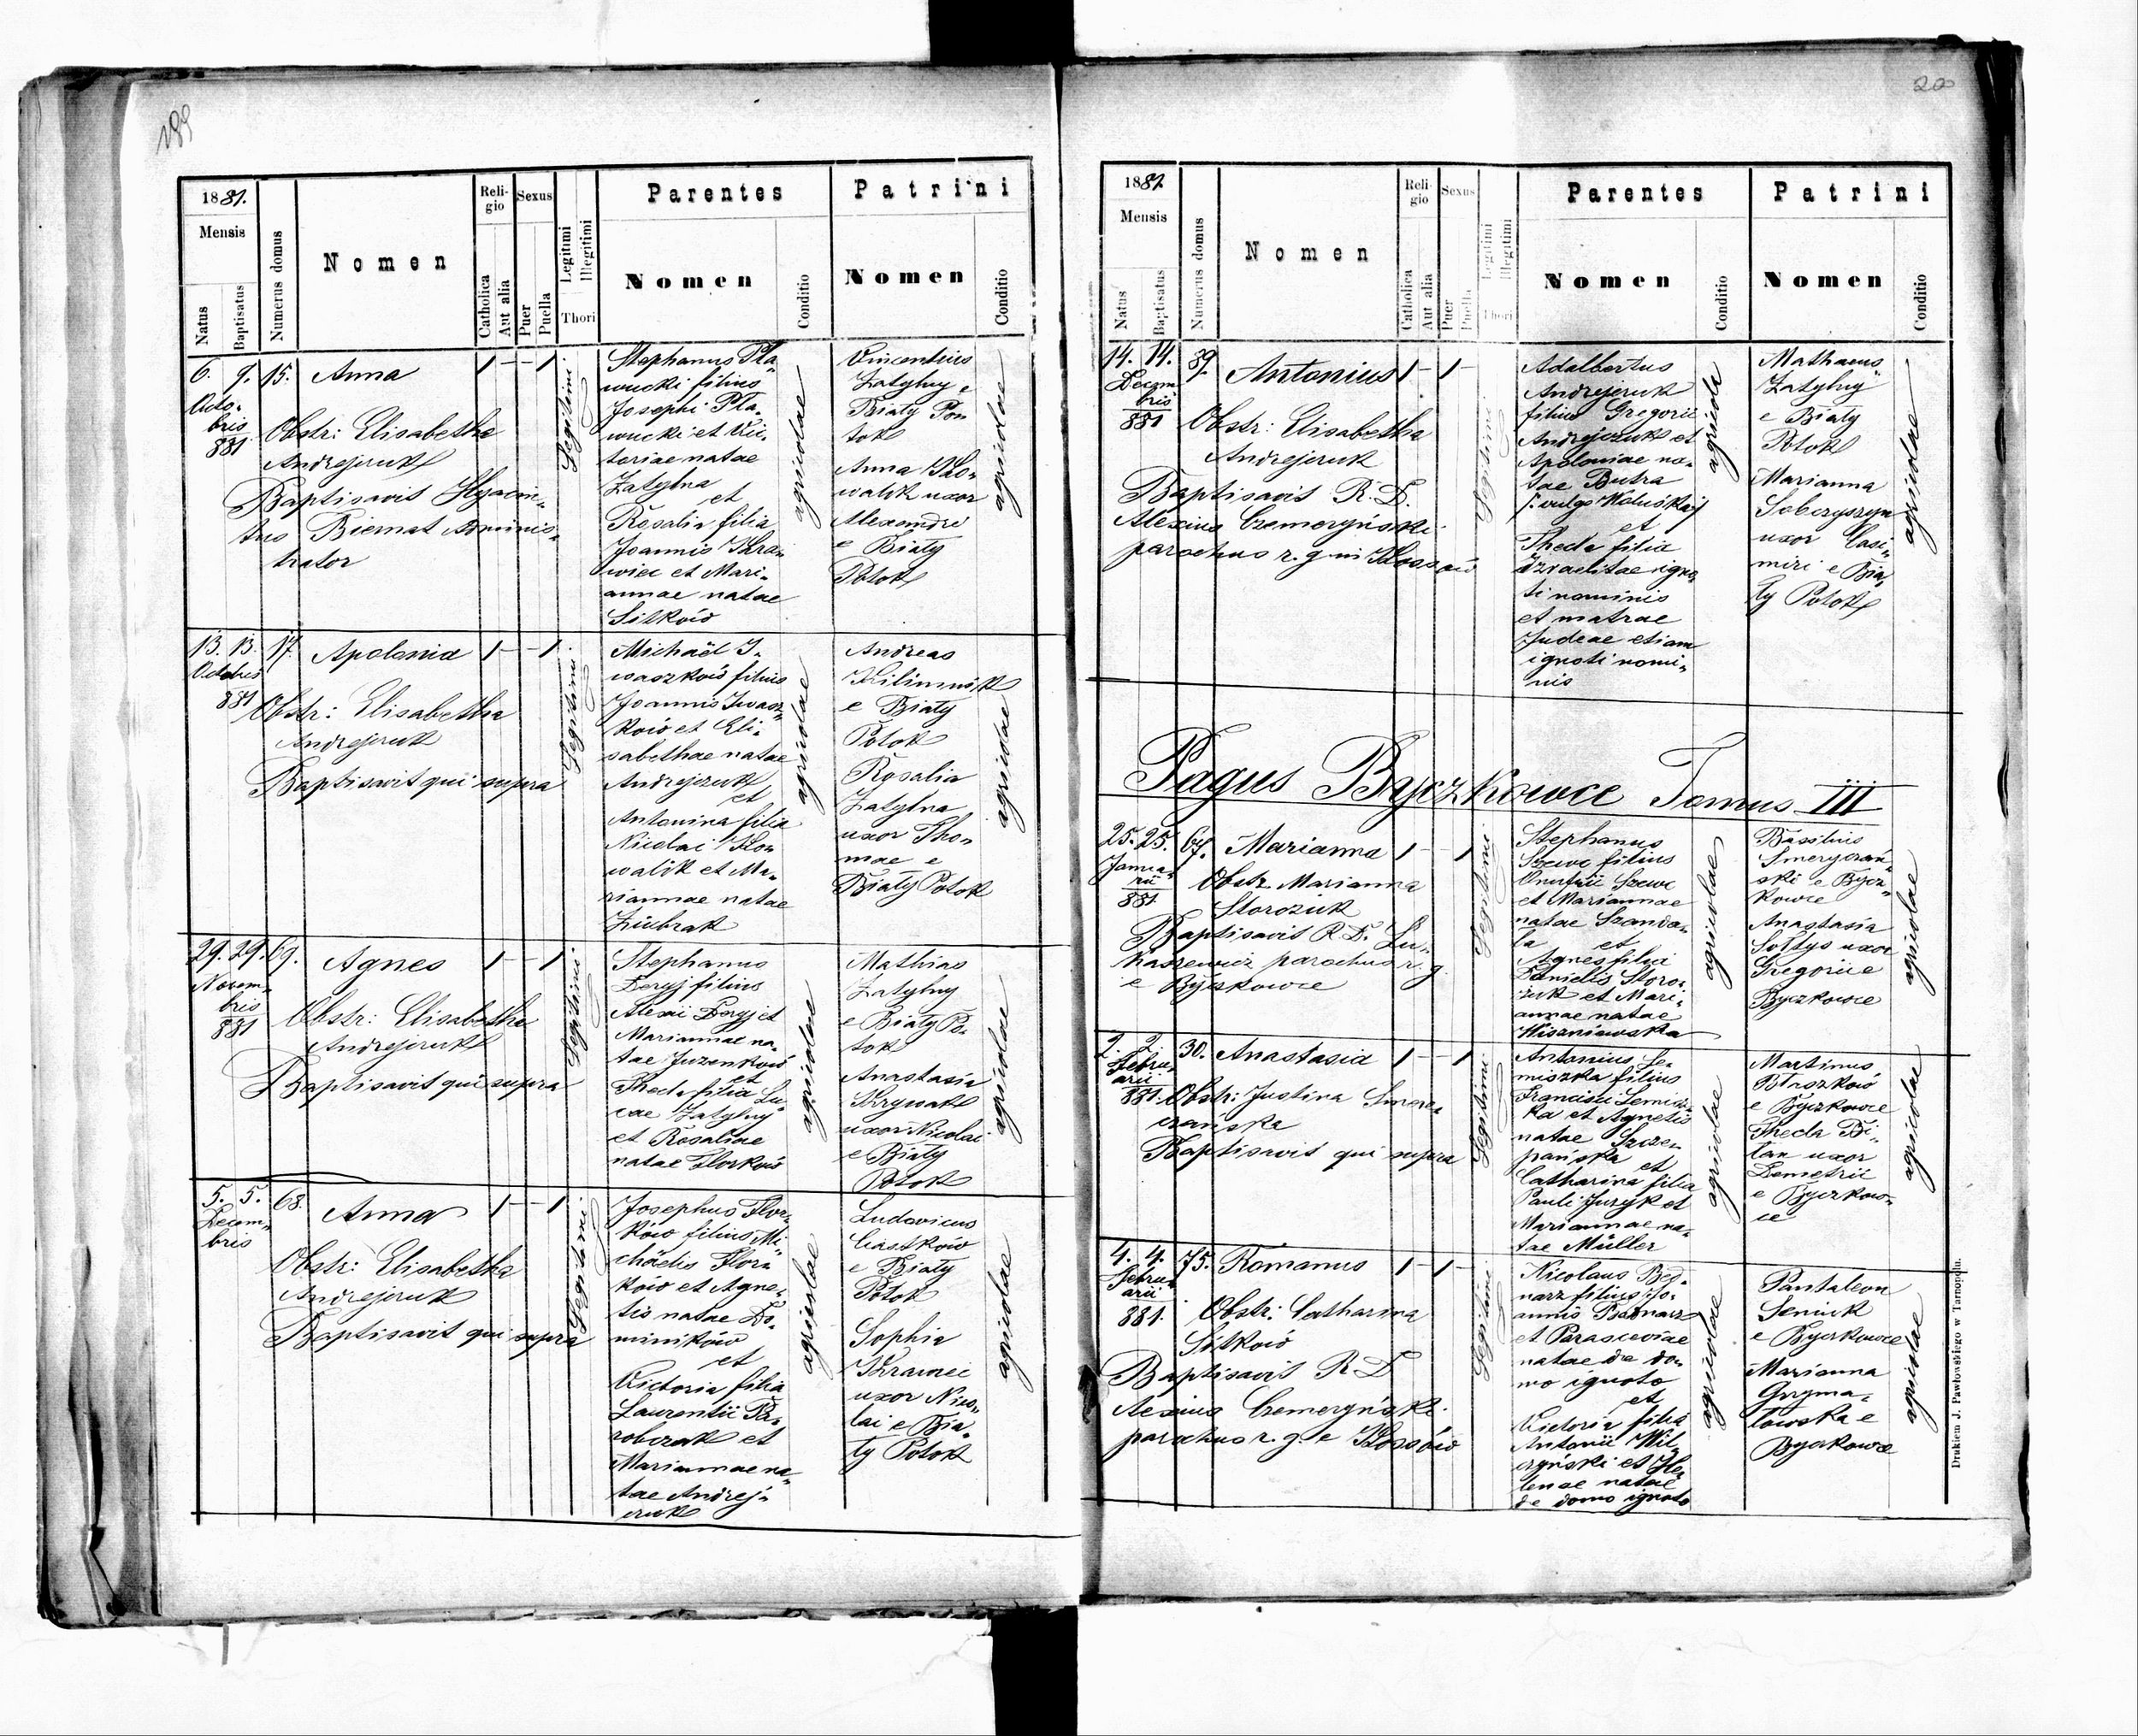 199
1881.
Mensis
Natus
Baptisatus
Numerus domus
Nomen
Religio
Catholica
Aut alia
Sexus
Puer
Puella
Legitimi
Illegitimi
Thori
Parentes
Nomen
Conditio
Patrini
Nomen
Conditio
6. 9. 15. Anna 1 — — 1
Octo-
bris
881
Obstr: Elisabetha
Andrejczuk
Baptisavit Hyacin-
tus Biernat Adminis-
trator
Legitimi
Stephanus Pła-
wucki filius
Josephi Pła-
wucki et Vic-
toriae natae
Zatylna
et
Rosalia filia
Joannis Kra-
wiec et Mari-
annae natae
Sitków
agricolae
Vincentius
Zatylny e
Biały Po-
tok
Anna Ko-
walik uxor
Alexandri
e Biały
Potok
agricolae
13. 13. 17. Apolonia 1 — — 1
Octobris
881
Obstr: Elisabetha
Andrejczuk
Baptisavit qui supra
Legitimi
Michaël I-
waszków filius
Joannis Iwasz-
ków et Eli-
sabethae natae
Andrejczuk
et
Antonina filia
Nicolai Ko-
walik et Ma-
riannae natae
Ziubrak
agricolae
Andreas
Kilimnik
e Biały
Potok
Rosalia
Zatylna
uxor Tho-
mae e
Biały Potok
agricolae
29. 29. 69. Agnes 1 — — 1
Novem-
bris
881
Obstr: Elisabetha
Andrejczuk
Baptisavit qui supra
Legitimi
Stephanus
Deryj filius
Alexii Deryj et
Mariannae na-
tae Juzenków
et
Thecla filia Lu-
cae Zatylny
et Rosaliae
natae Florków
agricolae
Mathias
Zatylny
e Biały Po-
tok
Anastasia
Krywak
uxor Nicolai
e Biały
Potok
agricolae
5. 5. 68. Anna 1 — — 1
Decem-
bris
Obstr: Elisabetha
Andrejczuk
Baptisavit qui supra
Legitimi
Josephus Flor-
ków filius Mi-
chäelis Flor-
ków et Agne-
tis natae Do-
miników
et
Victoria filia
Laurentii Pa-
robczak et
Mariannae na-
tae Andrej-
czuk
agricolae
Ludovicus
Ciastków
e Biały
Potok
Sophia
Krawiec
uxor Nico-
lai e Bia-
ły Potok
agricolae
200
1881.
Mensis
Natus
Baptisatus
Numerus domus
Nomen
Religio
Catholica
Aut alia
Sexus
Puer
Puella
Legitimi
Illegitimi
Thori
Parentes
Nomen
Conditio
Patrini
Nomen
Conditio
14. 14. 39. Antonius 1 — 1 —
Decem-
bris
881
Obstr: Elisabetha
Andrejczuk
Baptisavit R. D.
Alexius Czemeryński
parochus r. g. in Kossów
Legitimi
Adalbertus
Andrejczuk
filius Gregorii
Andrejczuk et
Apoloniae na-
tae Butra
et
Thecla filia
Izraelitae igno-
ti nominis
et matrae
Judeae etiam
ignoti nomi-
nis
agricolae
Mathaeus
Zatylny
e Biały
Potok
Marianna
Soberyszyn
uxor Casi-
miri e Bia-
ły Potok
agricolae
Pagus Byczkowce Tomus III
25. 25. 67. Marianna 1 — — 1
Janua-
rii
881
Obstr. Marianna
Storożuk
Baptisavit R. D. Lu-
kaszewicz parochus r. g.
e Byczkowce
Legitimi
Stephanus
Szewc filius
Onufrii Szewc
et Mariannae
natae Szanda-
la et
Agnes filia
Danielis Storo-
żuk et Mari-
annae natae
Wiszniowska
agricolae
Basilius
Smeryczań-
ski e Bycz-
kowce
Anastasia
Sołtys uxor
Gregorii e
Byczkowce
agricolae
2. 2. 30. Anastasia 1 — — 1
Febru-
arii
881.
Obstr: Justina Smere-
czańska
Baptisavit qui supra
Legitimi
Antonius Le-
miszka filius
Francisci Lemisz-
ka et Agnetis
natae Szcze-
pańska
et
Catharina filia
Pauli Juryk et
Mariannae na-
tae Müller
agricolae
Martinus
Błaszków
e Byczkowce
Thecla Bi-
tan uxor
Demetrii
e Byczkow-
ce
agricolae
4. 4. 75. Romanus 1 — 1 —
Febru-
arii
881.
Obstr: Catharina
Sitków
Baptisavit R. D.
Alexius Czemeryński
parochus r. g. e Kossów
Legitimi
Nicolaus Bed-
narz filius Jo-
annis Bednarz
et Parasceviae
natae de do-
mo ignoto
et
Victoria filia
Antonii Wil-
czyński et He-
lenae natae
de domo ignoto
agricolae
Pantaleon
Seniuk
e Byczkowce
Marianna
Gryma-
łowska e
Byczkowce
agricolae
Drukiem J. Pawłowskiego w Tarnopolu.